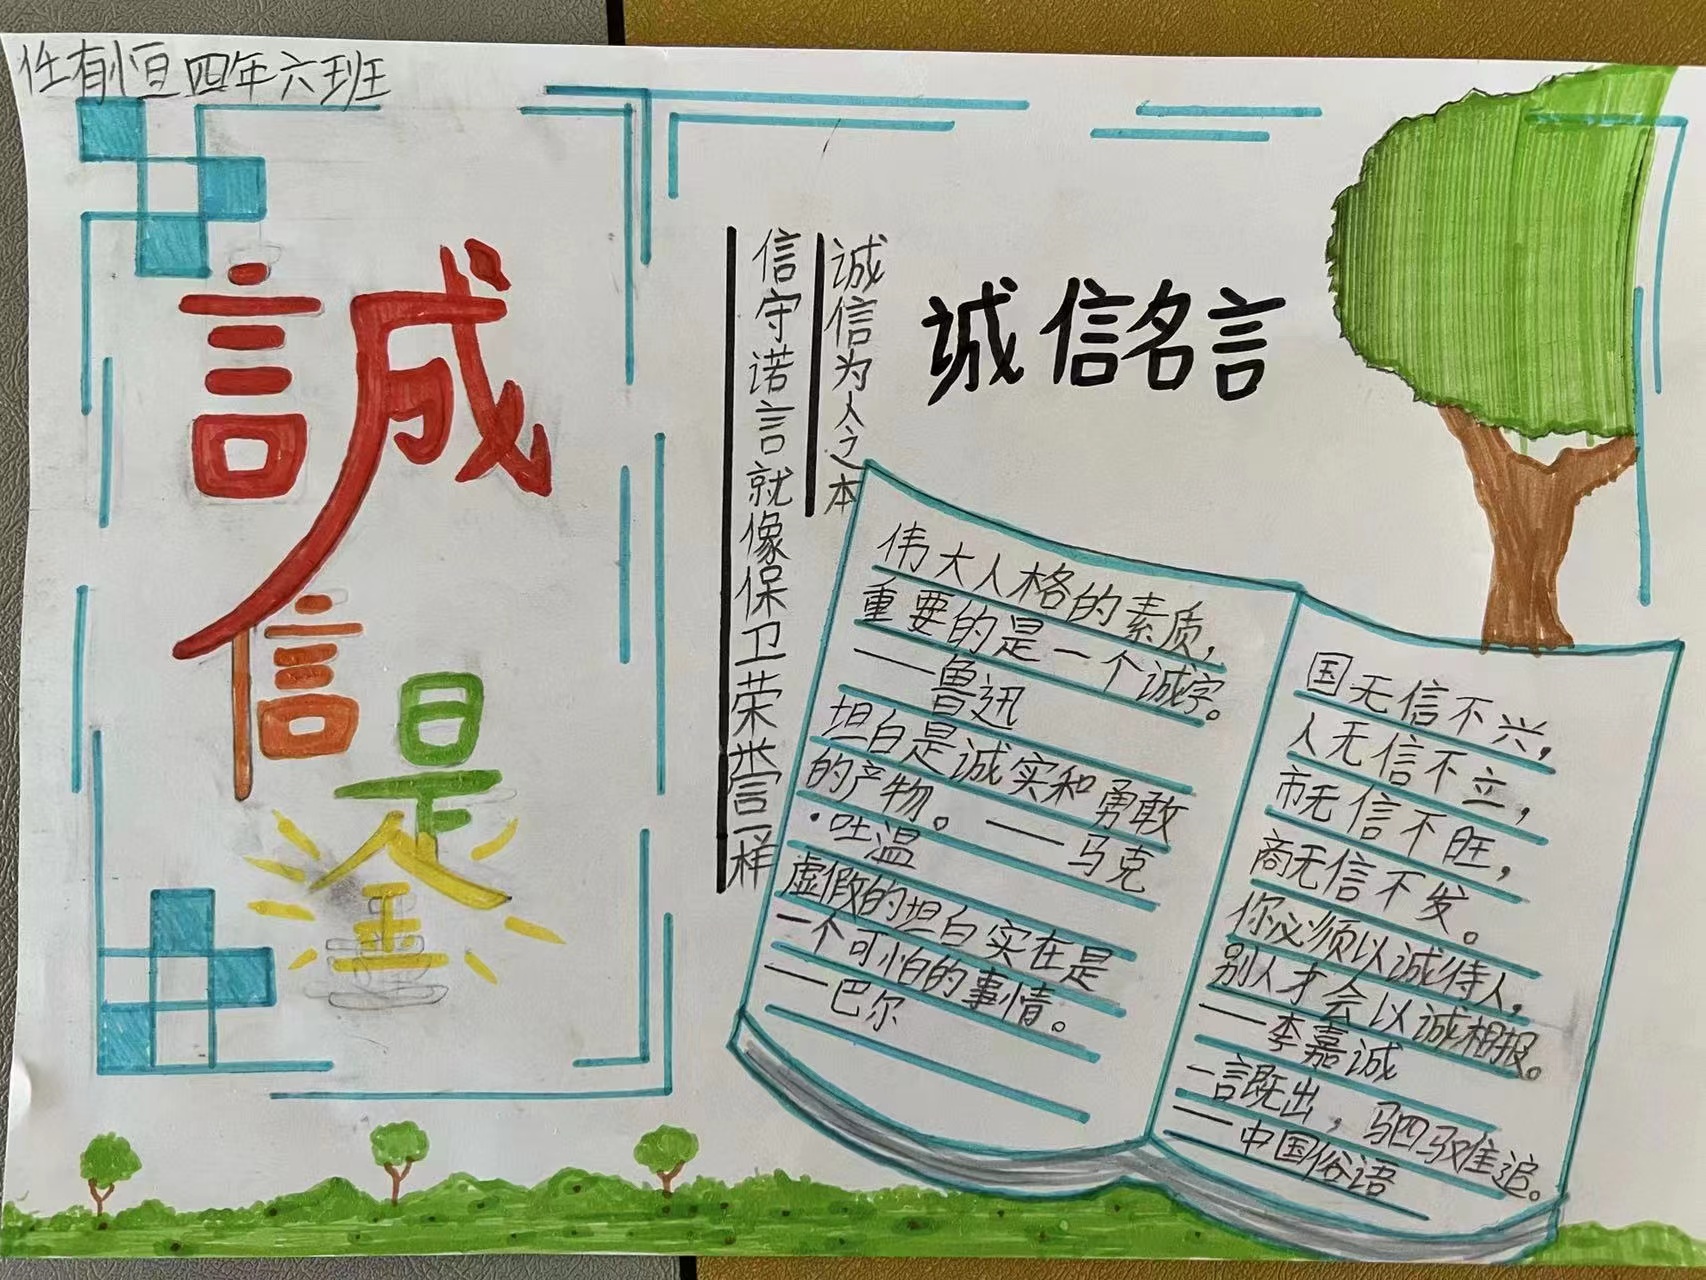 任有恒四年六班
誠
信
是
金
诚信为人之本
信守诺言就像保卫荣誉一样
诚信名言
伟大人格的素质，
重要的是一个诚字。
——鲁迅
坦白是诚实和勇敢
的产物。——马克
·吐温
虚假的坦白实在是
一个可怕的事情。
——巴尔
国无信不兴，
人无信不立，
市无信不旺，
商无信不发。
你必须以诚待人，
别人才会以诚相报。
——李嘉诚
一言既出，驷难追。
——中国俗语